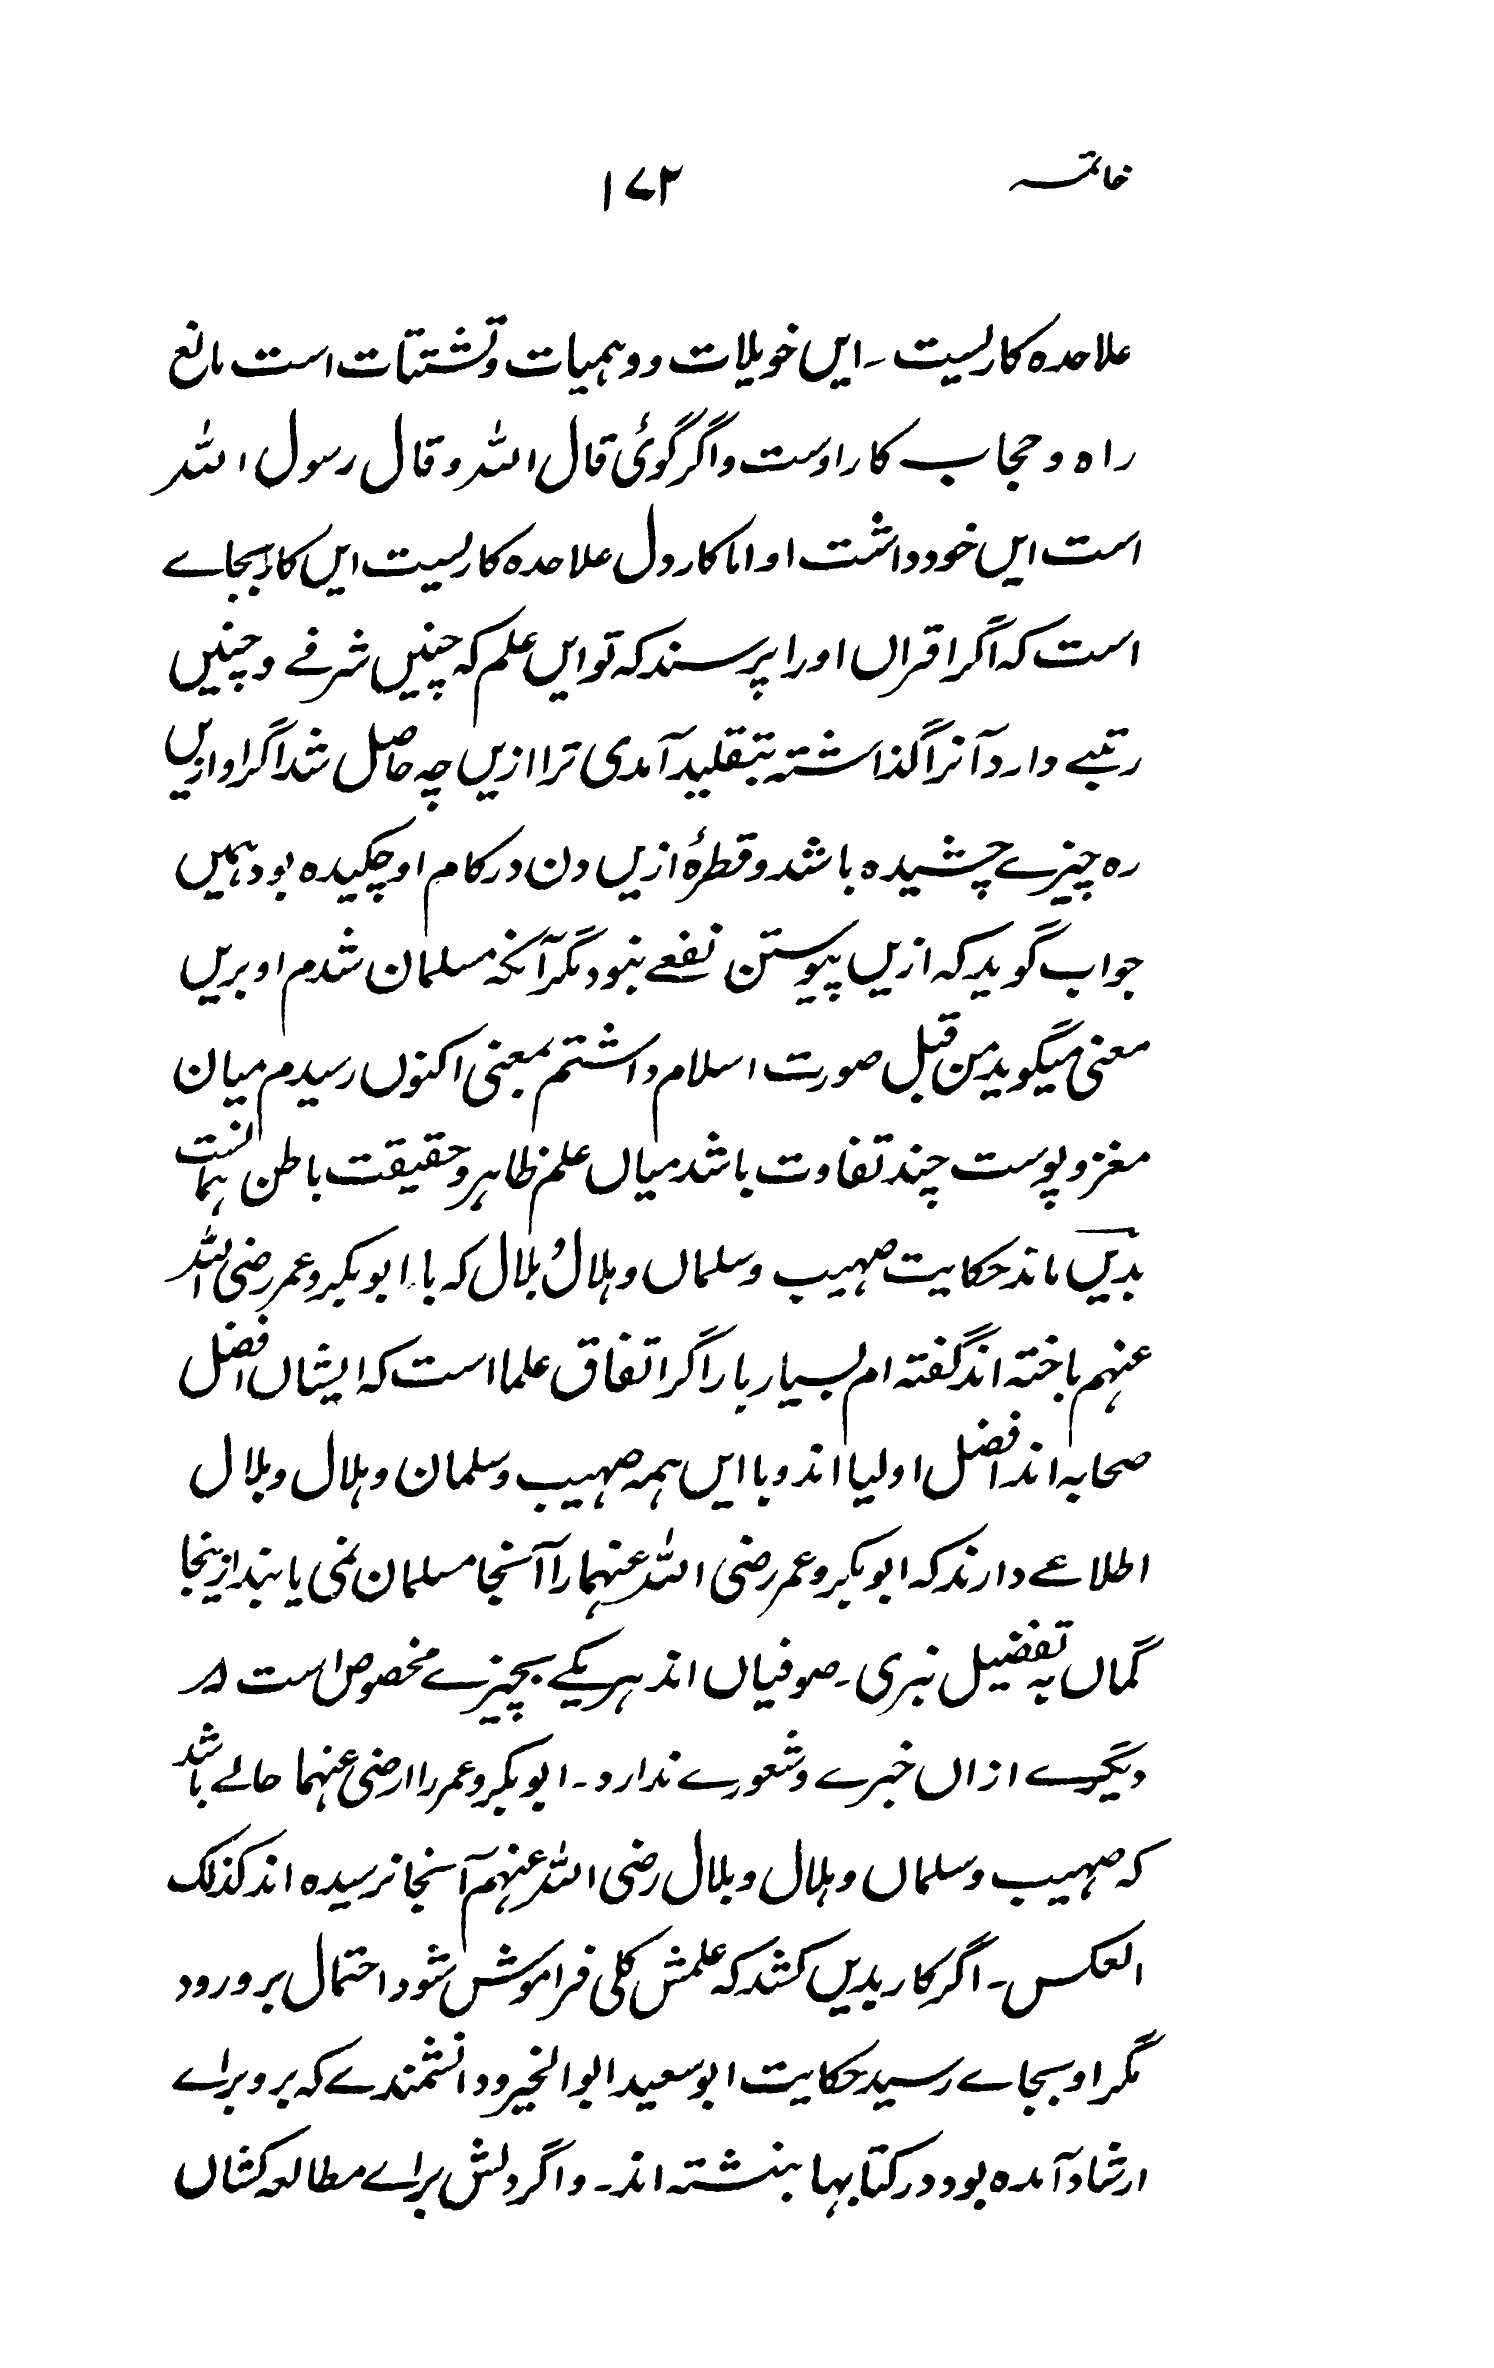 خاتمہ ۱۷۲
علاحدہ کاریست ۔ ایں خویلات و وہمیات و تشتتات است مانع
راہ و حجاب کار اوست و اگر گوئی قال اللہ و قال رسول اللہ
است ایں خود داشت او اما کار دل علاحدہ کاریست ایں کار بجاے
است کہ اگر اقراں او را پرسند کہ تو ایں علم کہ چنیں شرفے و چنیں
رتبے دارد آنرا گذاشتہ بتقلید آمدی ترا ازیں چہ حاصل شد اگر او ازیں
رہ چیزے چشیدہ باشد و قطرۂ ازیں دن در کام او چکیدہ بود ہمیں
جواب گوید کہ ازیں پیوستن نفعے نبود مگر آنکہ مسلمان شدم او بریں
معنی میگوید من قبل صورت اسلام داشتم بمعنی اکنوں رسیدم میان
مغز و پوست چند تفاوت باشد میاں علم ظاہر و حقیقت باطن ہمانست
بدیں ماند حکایت صہیب و سلماں و ہلال و بلال کہ با ابوبکر و عمر رضی اللہ
عنہم باختہ اند گفتہ ام بسیار بار اگر اتفاق علما است کہ ایشاں افضل
صحابہ اند افضل اولیا اند و با ایں ہمہ صہیب و سلمان و ہلال و بلال
اطلاعے دارند کہ ابوبکر و عمر رضی اللہ عنہما را آنجا مسلمان نمی یابند ازینجا
گماں بہ تفضیل نبری ۔ صوفیاں اند ہر یکے بچیزے مخصوص است کہ
دیگرے ازاں خبرے و شعورے ندارد ۔ ابوبکر و عمر را رضی عنہما حالے باشد
کہ صہیب و سلماں و ہلال و بلال رضی اللہ عنہم آنجا نرسیدہ اند کذلک
العکس ۔ اگر کار بدیں کشد کہ علمش کلی فراموش شود احتمال برو رود
مگر او بجاے رسید حکایت ابوسعید ابوالخیر و دانشمندے کہ برو براے
ارشاد آمدہ بود در کتابہا بنشتہ اند ۔ و اگر دلش براے مطالعہ کشاں